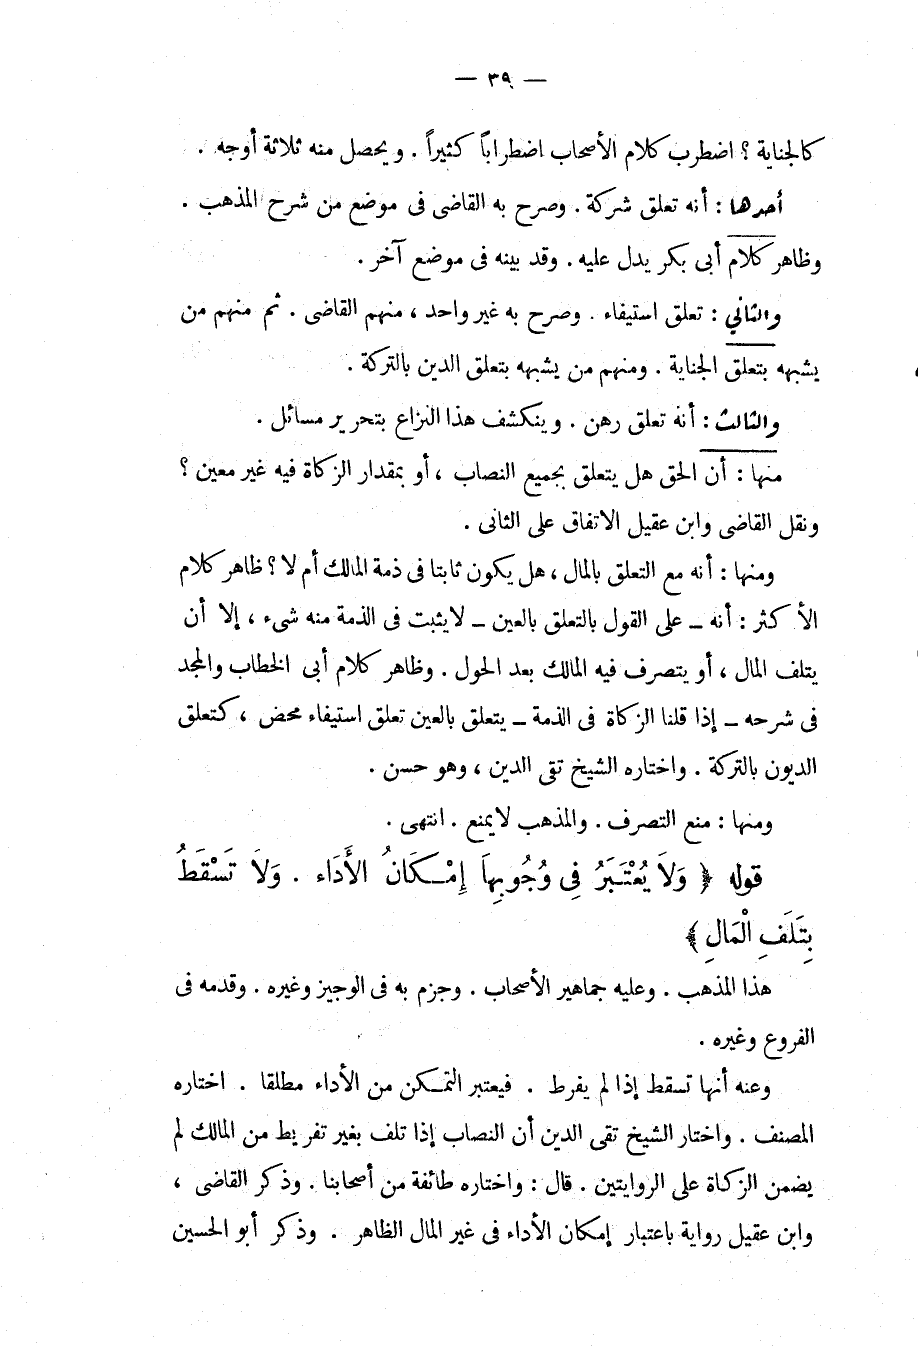 — ٣٩ —
كالجناية ؟ اضطرب كلام الأصحاب اضطراباً كثيراً . ويحصل منه ثلاثة أوجه .
أحدها : أنه تعلق شركة . وصرح به القاضى فى موضع من شرح المذهب .
وظاهر كلام أبى بكر يدل عليه . وقد بينه فى موضع آخر .
والثاني : تعلق استيفاء . وصرح به غير واحد ، منهم القاضى . ثم منهم من
يشبهه بتعلق الجناية . ومنهم من يشبهه بتعلق الدين بالتركة .
والثالث : أنه تعلق رهن . وينكشف هذا النزاع بتحرير مسائل .
منها : أن الحق هل يتعلق بجميع النصاب ، أو بمقدار الزكاة فيه غير معين ؟
ونقل القاضى وابن عقيل الاتفاق على الثانى .
ومنها : أنه مع التعلق بالمال ، هل يكون ثابتا فى ذمة المالك أم لا ؟ ظاهر كلام
الأكثر : أنه ــ على القول بالتعلق بالعين ــ لايثبت فى الذمة منه شىء ، إلا أن
يتلف المال ، أو يتصرف فيه المالك بعد الحول . وظاهر كلام أبى الخطاب والمجد
فى شرحه ــ إذا قلنا الزكاة فى الذمة ــ يتعلق بالعين تعلق استيفاء محض ، كتعلق
الديون بالتركة . واختاره الشيخ تقى الدين ، وهو حسن .
ومنها : منع التصرف . والمذهب لايمنع . انتهى .
قوله ﴿ وَلاَ يُعْتَبَرُ فِى وُجُوبِهاَ إِمْكَانُ الأَدَاء . وَلاَ تَسْقَطُ
بِتَلَفِ الْمَالِ ﴾
هذا المذهب . وعليه جماهير الأصحاب . وجزم به فى الوجيز وغيره . وقدمه فى
الفروع وغيره .
وعنه أنها تسقط إذا لم يفرط . فيعتبر التمكن من الأداء مطلقا . اختاره
المصنف . واختار الشيخ تقى الدين أن النصاب إذا تلف بغير تفريط من المالك لم
يضمن الزكاة على الروايتين . قال : واختاره طائفة من أصحابنا . وذكر القاضى ،
وابن عقيل رواية باعتبار إمكان الأداء فى غير المال الظاهر . وذكر أبو الحسين